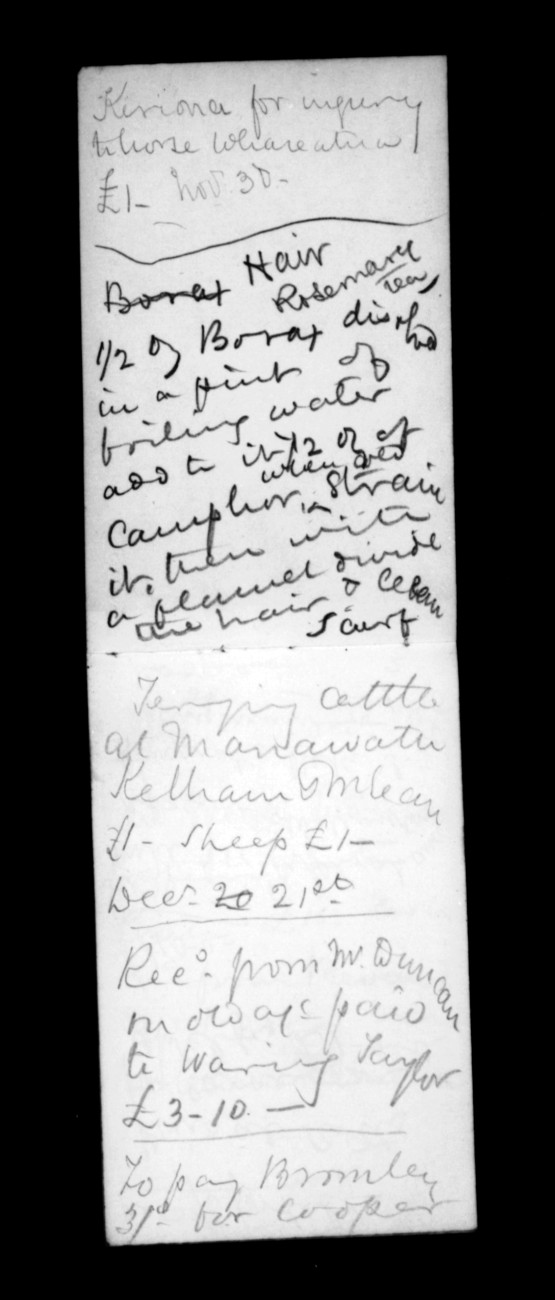 Kiriona for injury
to horse Whareatua
£1- Nov. 30-
Borax Hair
Rosemary
tea,
1/2 oz Borax dissolved
in a pint of
boiling water
add to it 1/2 oz of
when used
Camphor, strain
it, then with
a flannel divide
the hair & clean
scurf
Ferrying cattle
at Manawatu
Kelham & McLean
£1- Sheep £1-
Decr. 20 21st
Recd. from Mr. Duncan
on old a/c paid
to Waring Taylor
£3-10-
To pay Bromley
for Cooper